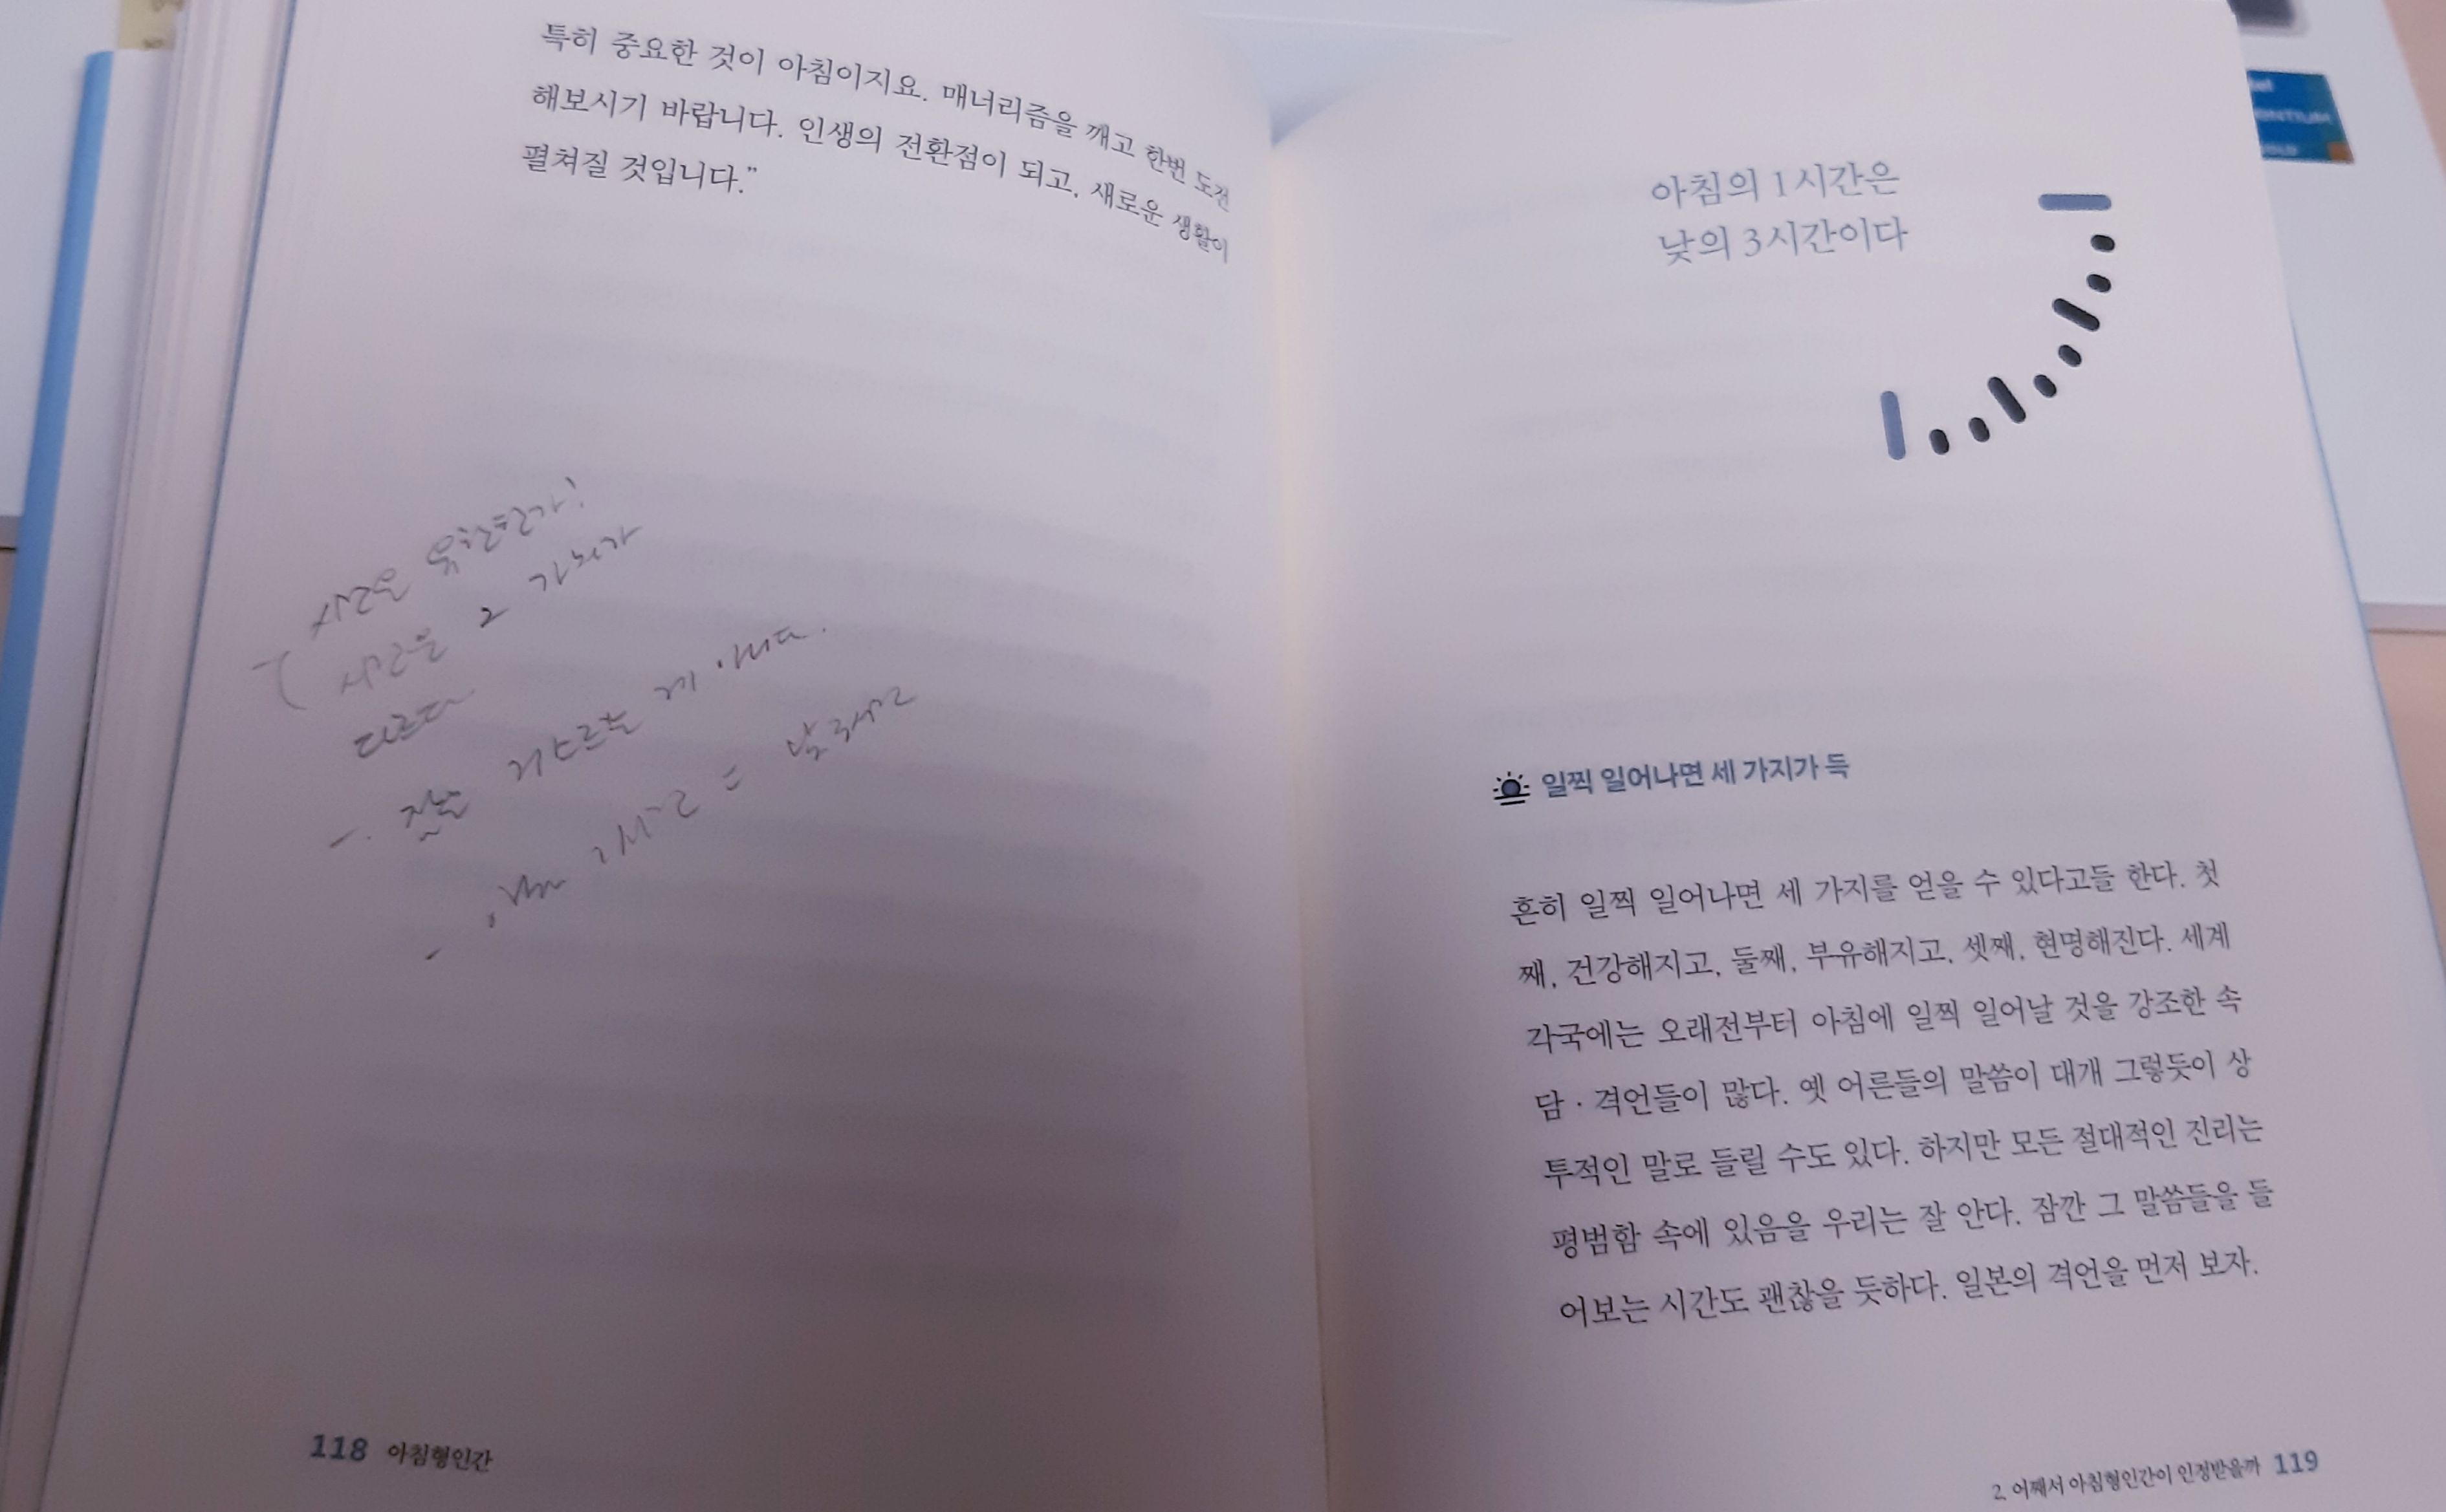 특히 중요한 것이 아침이지요. 매너리즘을 깨고 한번 도전
해보시기 바랍니다. 인생의 전환점이 되고, 새로운 생활이
펼쳐질 것입니다.”
시간은
시간은 그 가치가
다르다
잠을 거스르는 게 아니다.
1시간 = 낮 3시간
118 아침형인간
아침의 1시간은
낮의 3시간이다
일찍 일어나면 세 가지가 득
흔히 일찍 일어나면 세 가지를 얻을 수 있다고들 한다. 첫
째, 건강해지고, 둘째, 부유해지고, 셋째, 현명해진다. 세계
각국에는 오래전부터 아침에 일찍 일어날 것을 강조한 속
담·격언들이 많다. 옛 어른들의 말씀이 대개 그렇듯이 상
투적인 말로 들릴 수도 있다. 하지만 모든 절대적인 진리는
평범함 속에 있음을 우리는 잘 안다. 잠깐 그 말씀들을 들
어보는 시간도 괜찮을 듯하다. 일본의 격언을 먼저 보자.
2. 어째서 아침형인간이 인정받을까 119